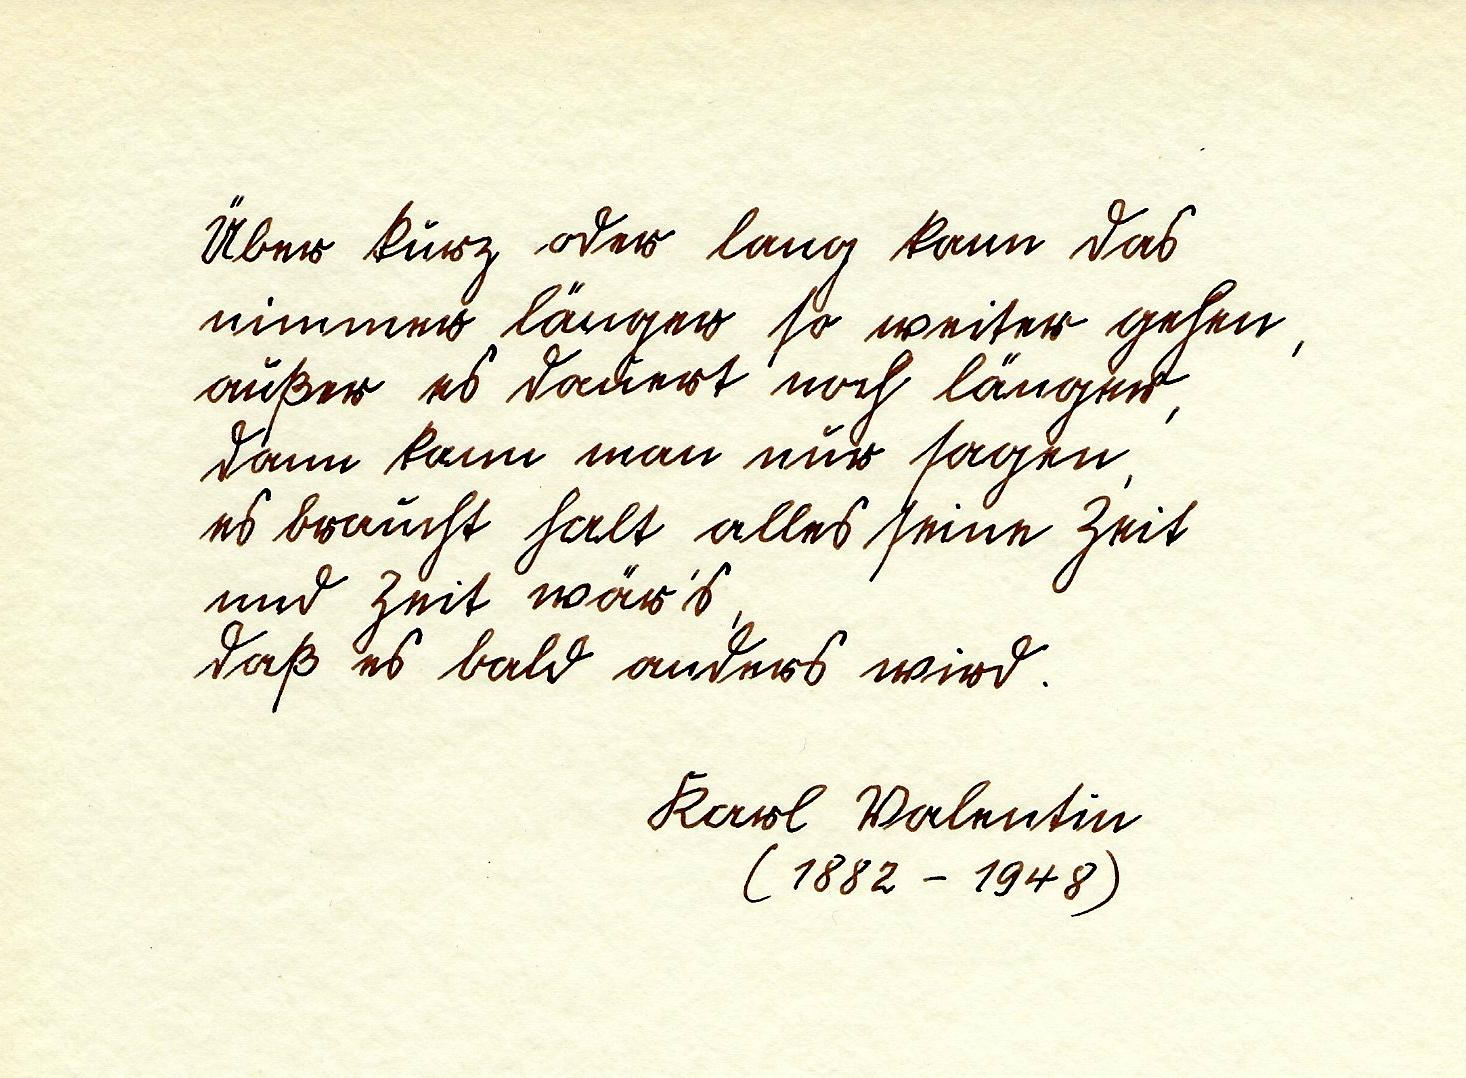 Über kurz oder lang kann das
nimmer länger so weiter gehen,
außer es dauert noch länger,
dann kann man nur sagen,
es braucht halt alles seine Zeit
und Zeit wär's,
daß es bald anders wird.
Karl Valentin
(1882 - 1948)